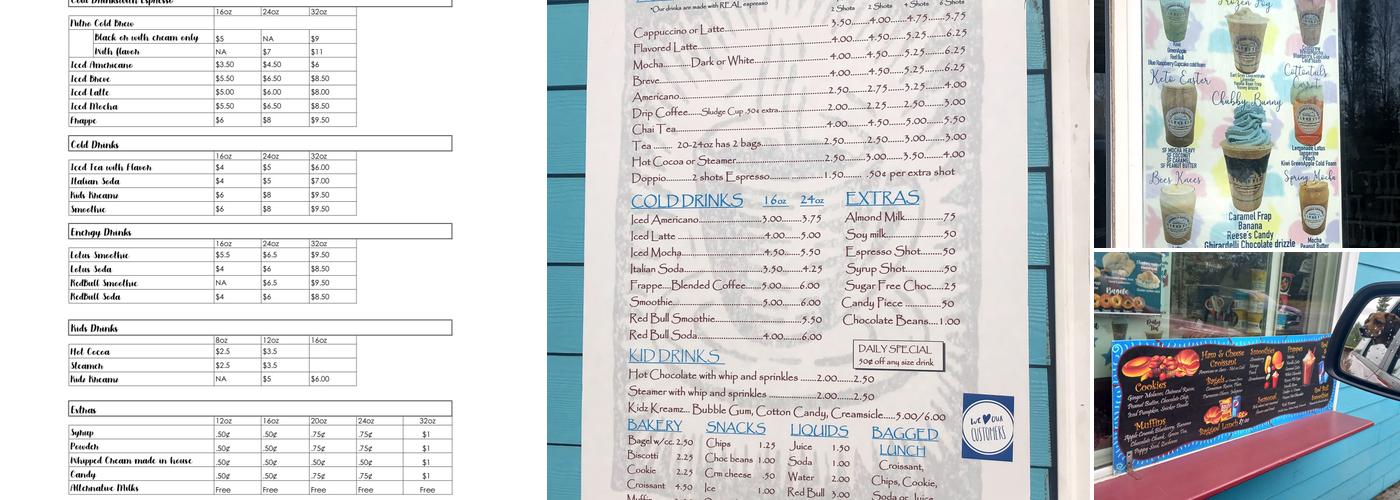 Cold Drinks with Espresso
16oz 24oz 32oz
Nitro Cold Brew
Black or with cream only $5 NA $9
With flavor NA $7 $11
Iced Americano $3.50 $4.50 $6
Iced Breve $5.50 $6.50 $8.50
Iced Latte $5.00 $6.00 $8.00
Iced Mocha $5.50 $6.50 $8.50
Frappe $6 $8 $9.50
Cold Drinks
16oz 24oz 32oz
Iced Tea with Flavor $4 $5 $6.00
Italian Soda $4 $5 $7.00
Kids Kreamz $6 $8 $9.50
Smoothie $6 $8 $9.50
Energy Drinks
16oz 24oz 32oz
Lotus Smoothie $5.5 $6.5 $9.50
Lotus Soda $4 $6 $8.50
RedBull Smoothie NA $6.5 $9.50
RedBull Soda $4 $6 $8.50
Kids Drinks
8oz 12oz 16oz
Hot Cocoa $2.5 $3.5
Steamer $2.5 $3.5
Kids Kreamz NA $5 $6.00
Extras
12oz 16oz 20oz 24oz 32oz
Syrup .50¢ .50¢ .75¢ .75¢ $1
Powder .50¢ .50¢ .75¢ .75¢ $1
Whipped Cream made in house .50¢ .50¢ .50¢ .50¢ $1
Candy .50¢ .50¢ .75¢ .75¢ $1
Alternative Milks Free Free Free Free Free
*Our drinks are made with REAL espresso 2 Shots 2 Shots 4 Shots 6 Shots
Cappuccino or Latte 3.50 4.00 4.75 5.75
Flavored Latte 4.00 4.50 5.25 6.25
Mocha Dark or White 4.00 4.50 5.25 6.25
Breve 4.00 4.50 5.25 6.25
Americano 2.50 2.75 3.25 4.00
Drip Coffee Sludge Cup .50¢ extra 2.00 2.25 2.50 3.00
Chai Tea 4.00 4.50 5.00 5.50
Tea 20-24oz has 2 bags 2.50 2.50 3.00 3.00
Hot Cocoa or Steamer 2.50 3.00 3.50 4.00
Doppio 2 shots Espresso 1.50 .50¢ per extra shot
COLD DRINKS 16oz 24oz
Iced Americano 3.00 3.75
Iced Latte 4.00 5.00
Iced Mocha 4.50 5.50
Italian Soda 3.50 4.25
Frappe Blended Coffee 5.00 6.00
Smoothie 5.00 6.00
Red Bull Smoothie 5.50
Red Bull Soda 4.00 6.00
EXTRAS
Almond Milk .75
Soy milk .50
Espresso Shot .50
Syrup Shot .50
Sugar Free Choc .25
Candy Piece .50
Chocolate Beans 1.00
DAILY SPECIAL
50¢ off any size drink
KID DRINKS
Hot Chocolate with whip and sprinkles 2.00 2.50
Steamer with whip and sprinkles 2.00 2.50
Kidz Kreamz... Bubble Gum, Cotton Candy, Creamsicle 5.00/6.00
BAKERY
Bagel w/cc 2.50
Biscotti 2.25
Cookie 2.25
Croissant 4.50
Muffin
SNACKS
Chips 1.25
Choc beans 1.00
Crm cheese .50
Ice 1.00
LIQUIDS
Juice 1.50
Soda 1.00
Water 2.00
Red Bull 3.00
BAGGED
LUNCH
Croissant,
Chips, Cookie,
Soda or Juice
WE OUR
CUSTOMERS
Frozen Fog
Kiwi
Green Apple
Red Bull
Blue Raspberry Cupcake cold foam
Keto Easter
Cottontails
Carrot
Chubby Bunny
SF MOCHA HEAVY
SF COCONUT
SF CARAMEL
SF PEANUT BUTTER
Lemonade Lotus
Tangerine
Peach
Kiwi Green Apple Cold Foam
Bees Knees
Spring Mocha
Caramel Frap
Banana
Reese's Candy
Ghirardelli Chocolate drizzle
Mocha
Peanut Butter
Bagels
Ham & Cheese
Croissant
Smoothies
Frappes
Cookies
Ginger Molasses, Oatmeal Raisin,
Peanut Butter, Chocolate Chip,
Iced Pumpkin, Snicker Doodle
Bagels
Muffins
Bagged Lunch